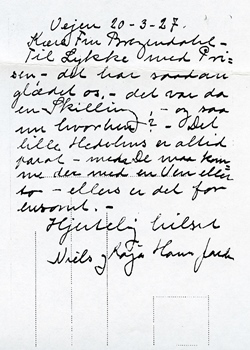 Vejen 20-3-27.
Kære Fru Brazendahl. -
Til Lykke med Pri-
sen, - det har saadan
glædet os, - det var da
en Skilling, - og saa
nu hvorhen? - Det
lille Hedelius er altid
parat - men De maa kom-
me der med en Ven eller
to - ellers er det for
ensomt. -
Hjertelig hilset
Niels og Kaja Hansen